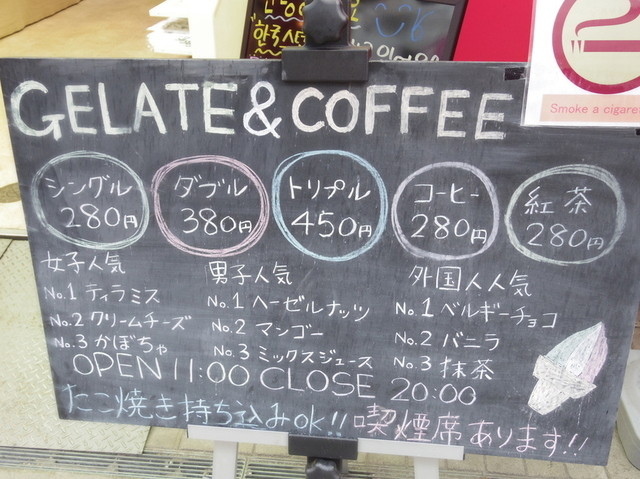 한국
Smoke a cigare
GELATE & COFFEE
シングル 280円
ダブル 380円
トリプル 450円
コーヒー 280円
紅茶 280円
女子人気
No.1 ティラミス
No.2 クリームチーズ
No.3 かぼちゃ
男子人気
No.1 ヘーゼルナッツ
No.2 マンゴー
No.3 ミックスジュース
外国人人気
No.1 ベルギーチョコ
No.2 バニラ
No.3 抹茶
OPEN 11:00 CLOSE 20:00
たこ焼き持ち込みOK!! 喫煙席あります!!